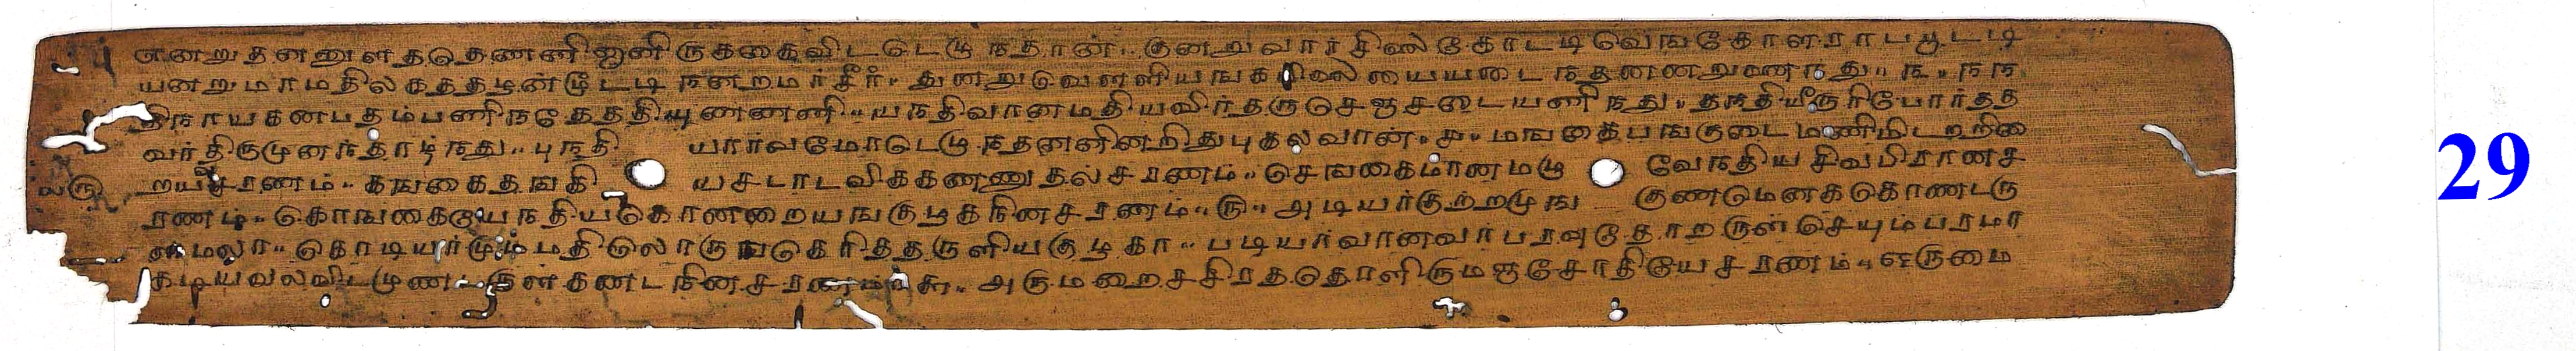 னறுதனனுளததெணணிஇனிருககைவிடடெழுநதான் குனறுவார்சிலைகோடடிவெஙகோளராபபூடடி
யனறுமாமதிலகததழனமூடடிநினறமர்சீர் துனறுவெளளியஙகிரிலையையடைநதனனறுணைநது ந நந
திநாயகனபதம்பணிநதேததியுணணணி யநதிவானமதியவிர்தருசெஞசடையணிநது தநதியீருரிபோர்தத
வர்திருமுனந்தாழ்நது புநதி யார்வமோடெழுநதனனினறிதுபுகலவான் ச மஙகைபஙகுடைமணிமிடறறிறை
யரு
றயசரணம் கஙகைதஙகி யசடாடவிககணணுதல்சரணம் செஙகைமானமழு வேநதியசிவபிரானச
ரணம் கொஙகையேநதியகொனறையஙகுழகநினசரணம் ரு அடியர்குற்றமுஙகுணமெனககொணடரு
ளமலா கொடியர்மும்மதிலொருஙகெரிததருளியகுழகா படியர்வானவர்பரவுதொறருள்செயும்பரமா
கடியவலவிடமுணடிருள்கணடநினசரணம் சு அருமறைசசிரததொளிருமஞசோதியேசரணம் ஒருமை
29